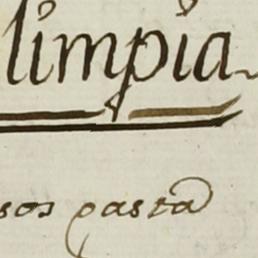 limpia
sos pasta